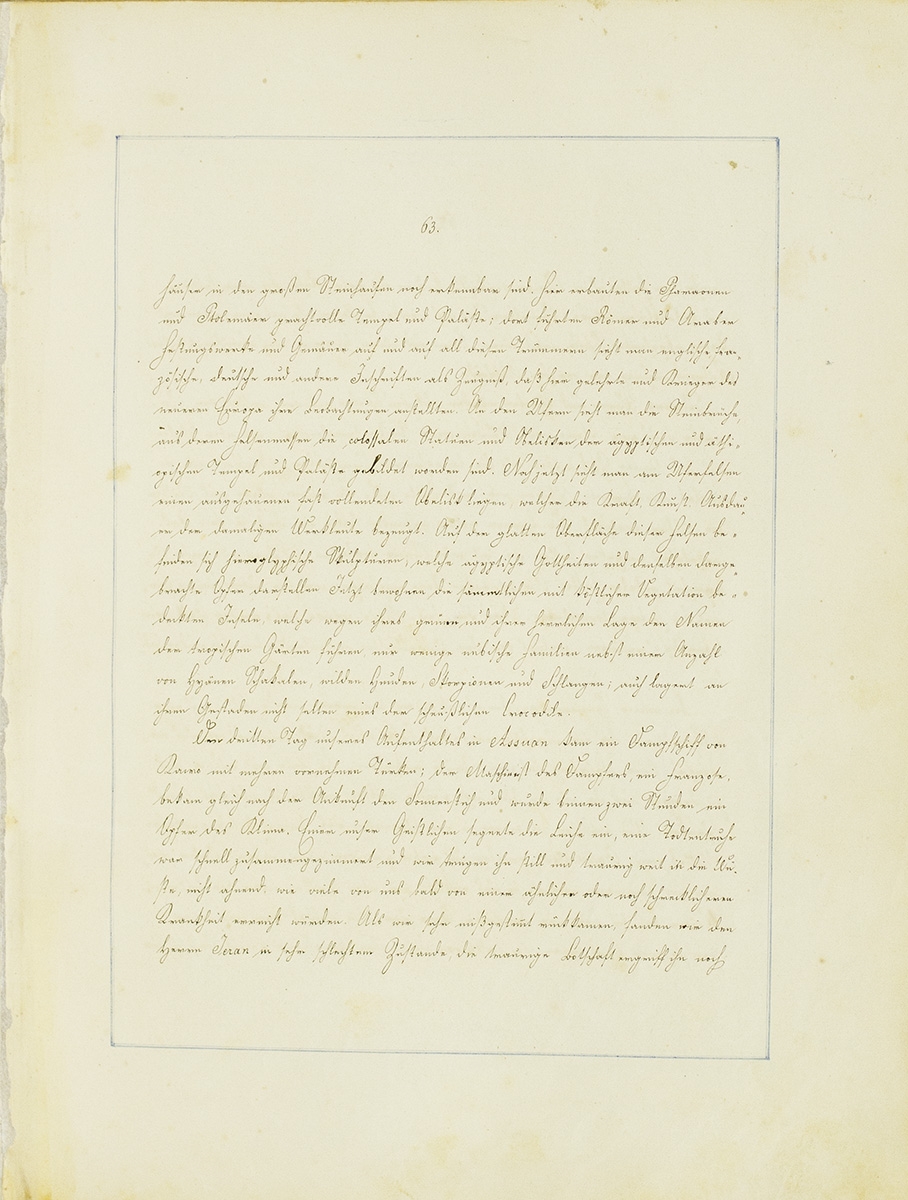 63.
häuser in den großen Steinhaufen noch erkennbar sind. Hier erbauten die Pharaonen
und Ptolemäer prachtvolle Tempel und Paläste; dort führten Römer und Araber
Festungswerke und Gemäuer auf und auf all diesen Trümmern sieht man englische, fran-
zösische, deutsche und andere Inschriften als Zeugniß, daß hier gelehrte und Krieger des
neueren Europa ihre Beobachtungen anstellten. An den Ufern sieht man die Steinbrüche,
aus deren Felsenmassen die colossalen Statuen und Obelisken der ägyptischen und äthi-
opischen Tempel und Paläste gebildet worden sind. Noch jetzt sieht man am Uferfelsen
einen ausgehauenen fast vollendeten Obelisk liegen, welcher die Kraft, Kunst, Ausdau
er der damaligen Werkleute bezeugt. Auf der glatten Oberfläche dieser Felsen be-
finden sich hieroglyphische Skulpturen, welche ägyptische Gottheiten und denselben darge-
brachte Opfer darstellen Jetzt bewohnen die sämmtlichen mit köstlicher Vegetation be-
deckten Inseln, welche wegen ihres grünen und ihrer herrlichen Lage den Namen
der tropischen Gärten führen nur wenige nubische Familien nebst einer Anzahl
von Hyänen Schakalen, wilden Hunden, Skorpionen und Schlangen; auch lagert an
ihren Gestaden nicht selten eines der scheußlichen Crocodile.
Den dritten Tag unseres Aufenthaltes in Assuan kam ein Dampfschiff von
Kairo mit mehren vornehmen Türken; der Maschinist des Dampfers, ein Franzose,
bekam gleich nach der Ankunft den Sonnenstich und wurde binnen zwei Stunden ein
Opfer des Klima. Einer unser Geistlichen segnete die Leiche ein, eine Todtentruhe
war schnell zusammengezimmert und wir trugen ihn still und traurig weit in die Wü-
ste, nicht ahnend, wie viele von uns bald von einer ähnlichen oder noch schrecklicheren
Krankheit erreicht würden. Als wir sehr mißgestimt rückkamen, fanden wir den
Herrn Jeran in sehr schlechtem Zustande, die traurige Botschaft ergriff ihn noch